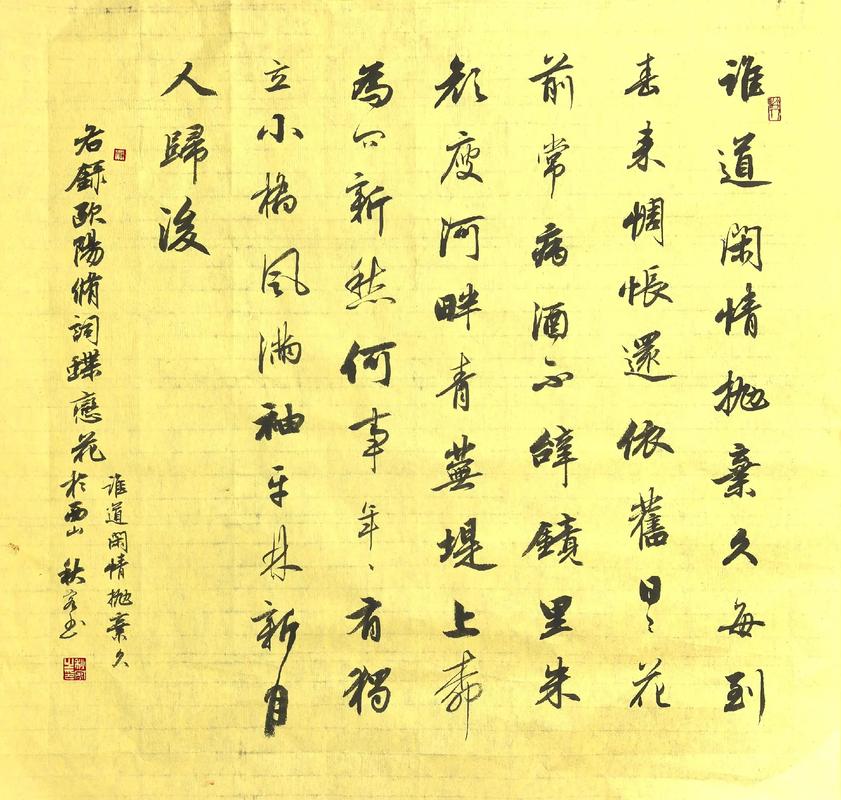 誰道閑情抛棄久每到
春来惆悵還依舊日〻花
前常病酒不辭鏡里朱
顔瘦河畔青蕪堤上柳
為问新愁何事年〻有獨
立小橋風满袖平林新月
人歸後
右録歐陽脩詞蝶戀花
誰道閑情抛棄久
於西山 秋 书